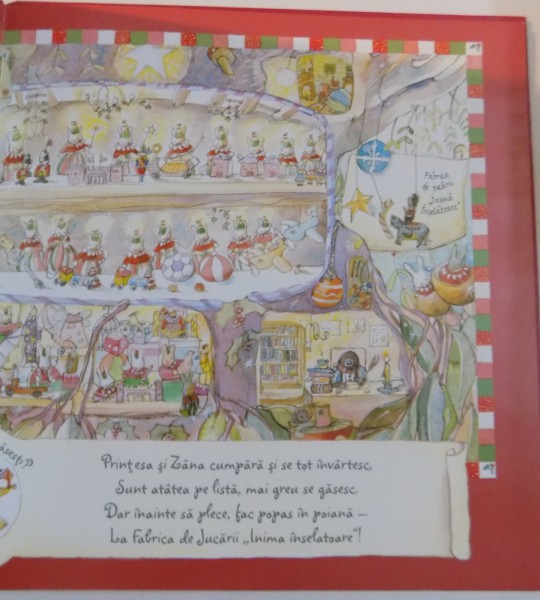 Fabrica
de jucării
Inimă
Înșelătoare"
găsești?
Prințesa și Zâna cumpără și se tot învârtesc,
Sunt atâtea pe listă, mai greu se găsesc.
Dar înainte să plece, fac popas în poiană –
La Fabrica de Jucării „Inima înselatoare"!